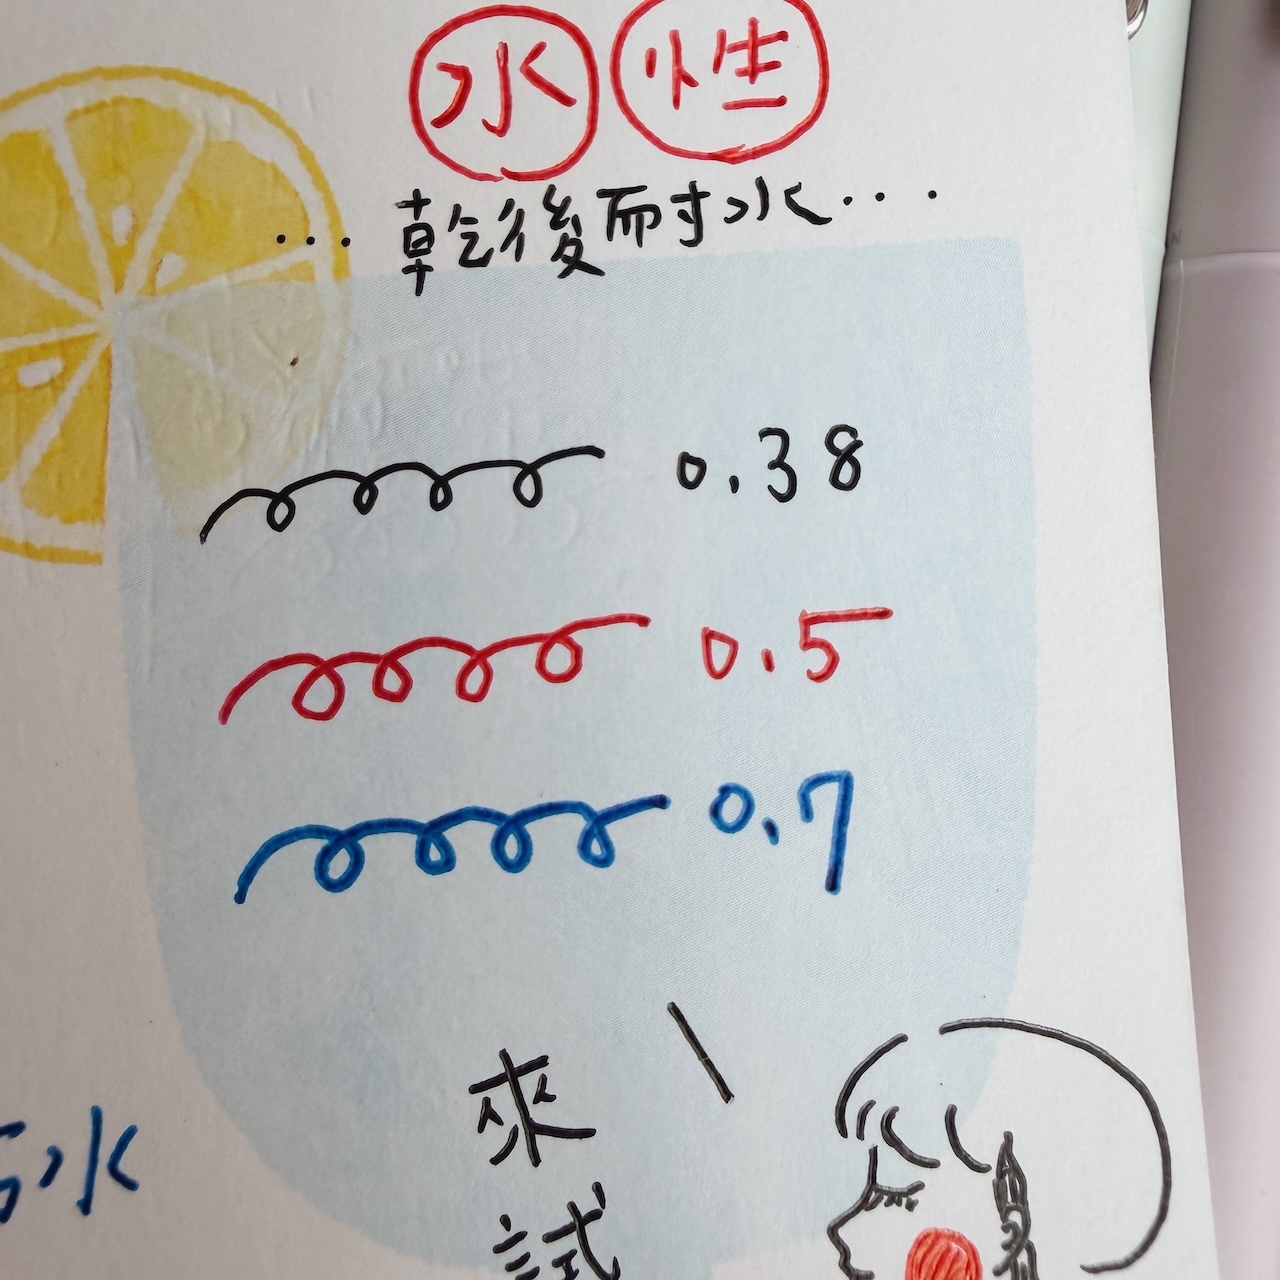 水性
...乾後耐水...
0.38
0.5
0.7
水
來
試